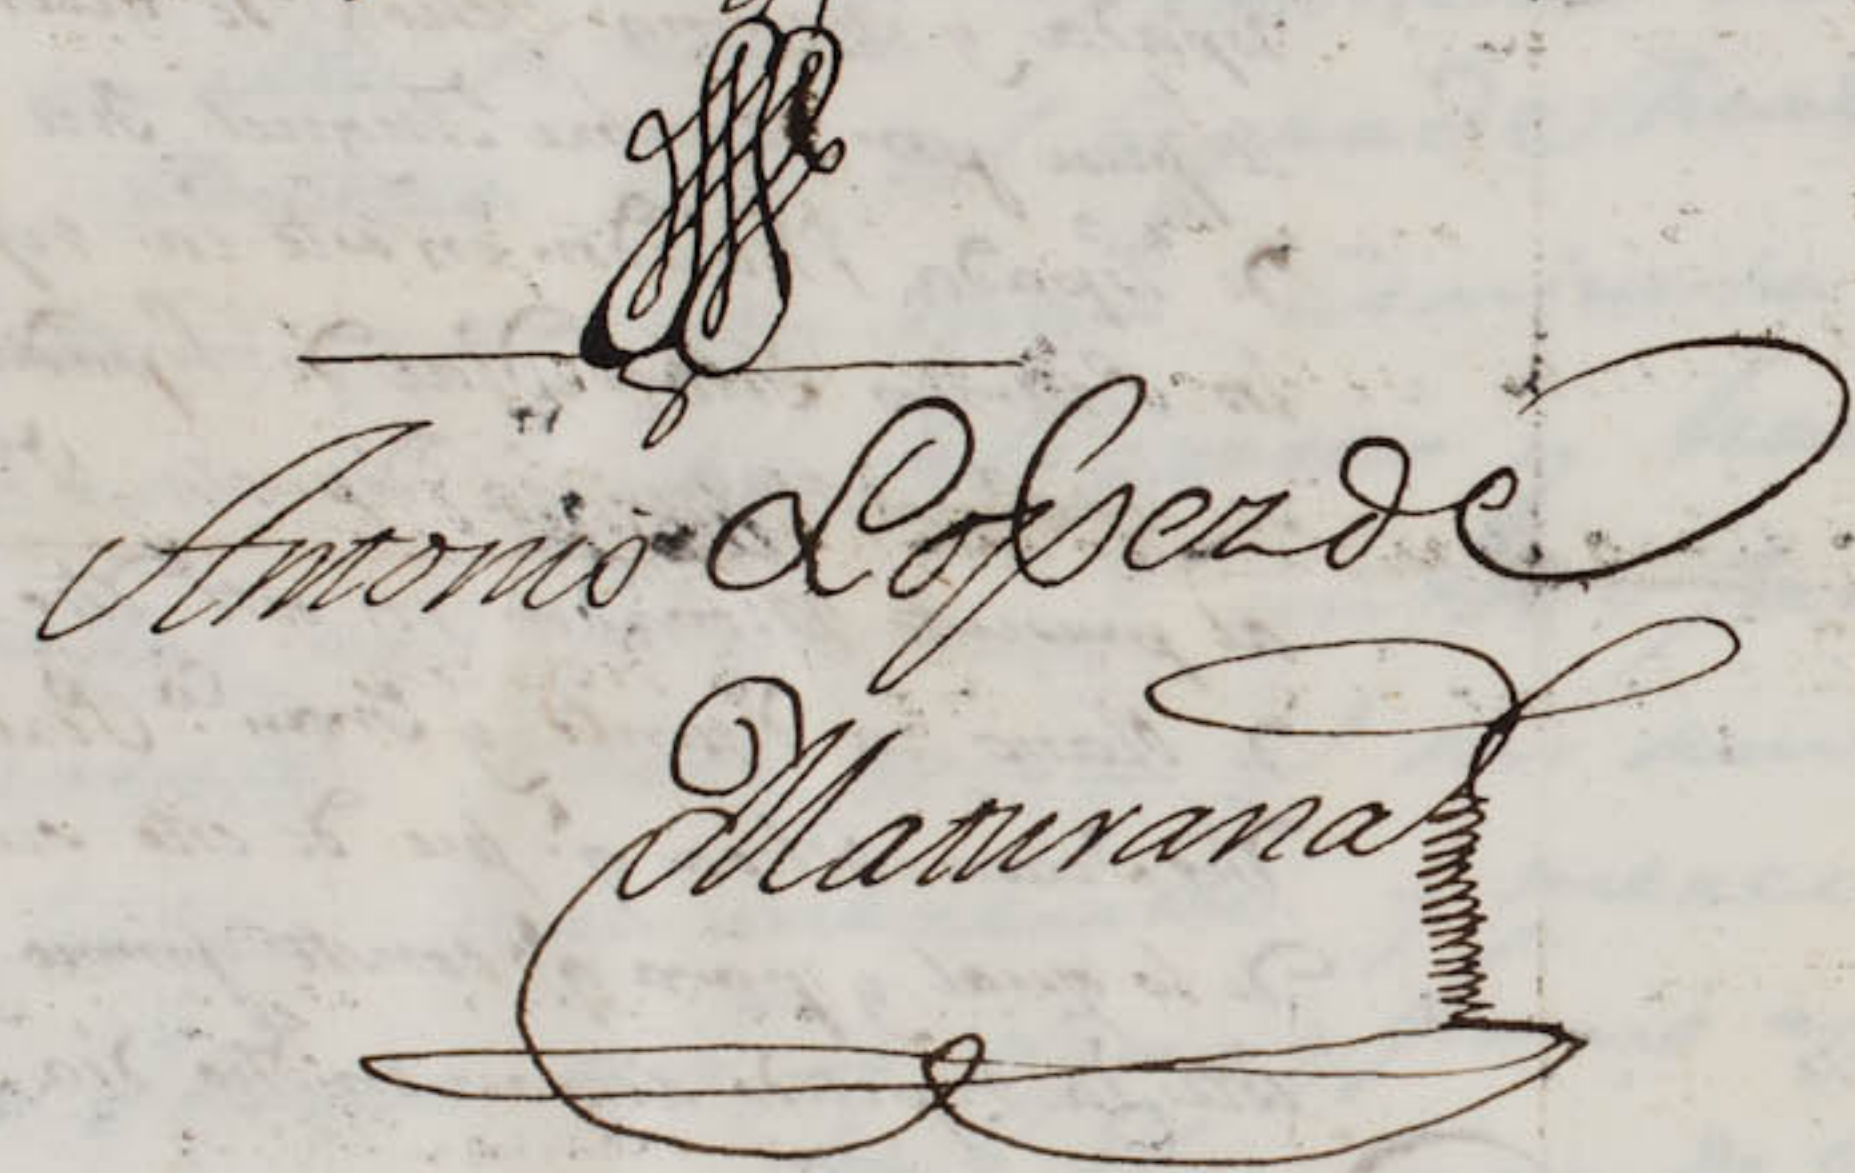 Antonio Lopez de
Maturana